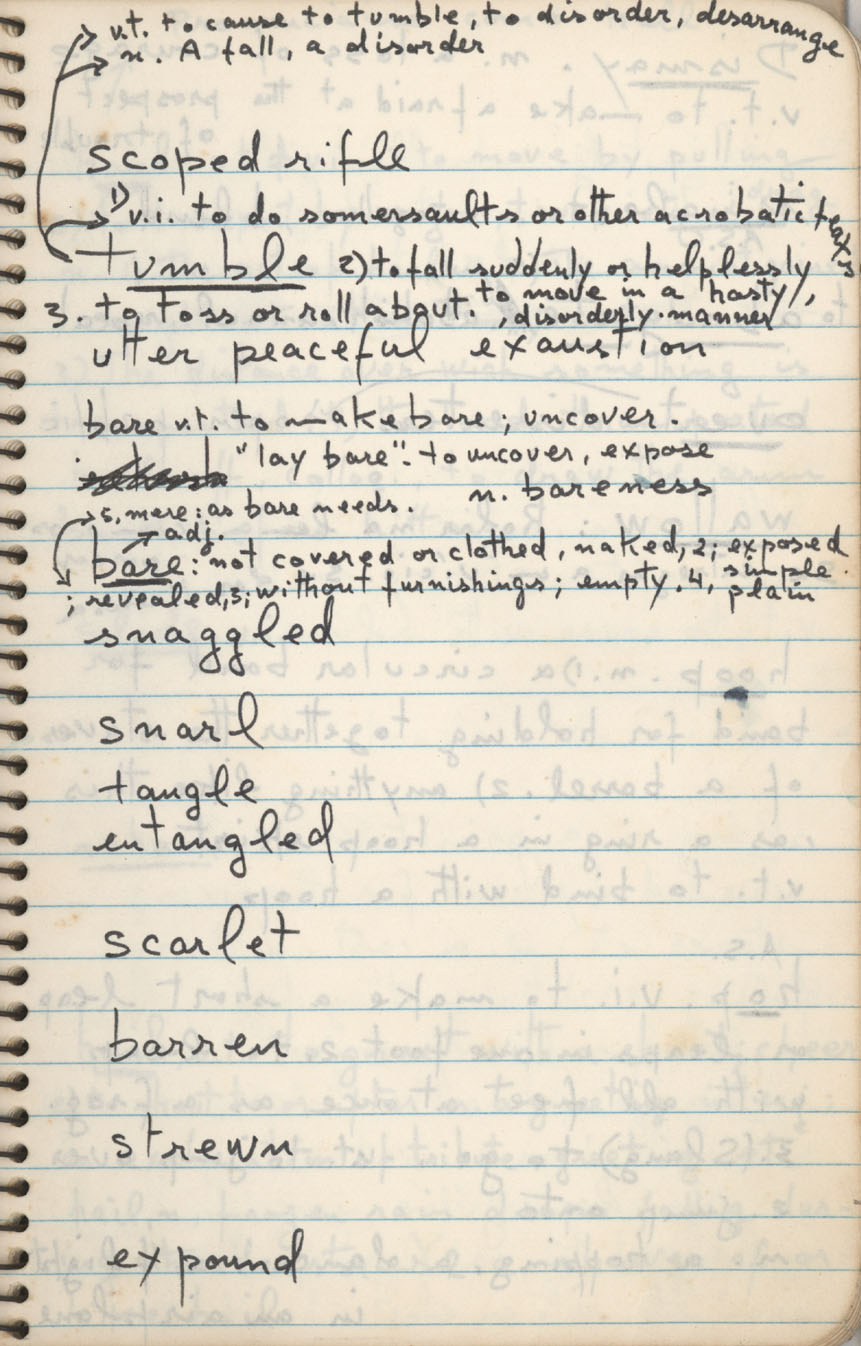 v.t. to cause to tumble, to disorder, desarrange
n. A fall, a disorder
scoped rifle
1) v.i. to do somersaults or other acrobatic feats
tumble 2) to fall suddenly or helplessly,
3. to toss or roll about. to move in a hasty,
, disorderly manner
utter peaceful exaustion
bare v.t. to make bare; uncover.
"lay bare": to uncover, expose
n. bareness
5, mere: as bare needs.
adj.
bare: not covered or clothed, naked, 2; exposed
; revealed, 3; without furnishings; empty. 4, simple.
plain
snaggled
snarl
tangle
entangled
scarlet
barren
strewn
expound